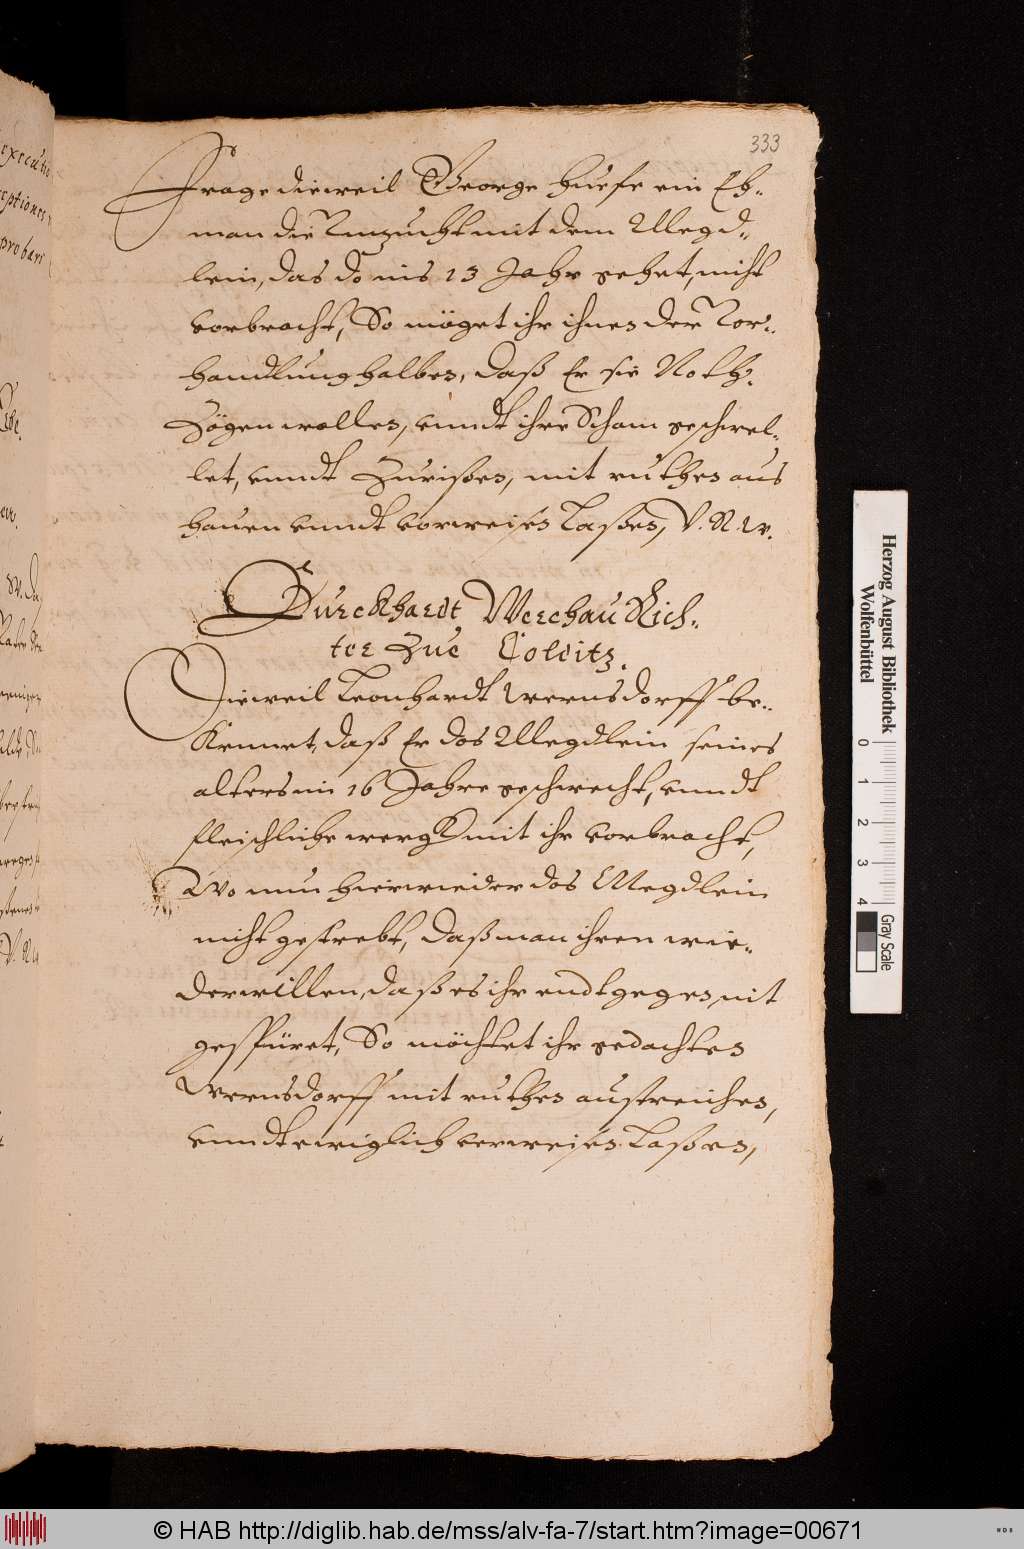 333
Frage dieweil George Huefe ein Eh-
man die Vnzucht mit dem Megd-
lein, das do nis 13 Jahr gehet, nicht
vorbracht, So möget ihr ihnen der Vor-
handlung halben, daß Er sie Noth-
Zögen wollen, vnndt ihre Scham geschwel-
let, vnndt Zurißen, mit ruthen aus
hauen vnndt vorweisen Laßen, V. R. w.
Burckhardt Werchau Rich-
ter Zue Colditz.
Dieweil Leonhardt Wernsdorff be-
Kennet, daß Er das Megdlein seines
alters im 16 Jahre geschwecht, vnndt
fleischliche werck mit ihr vorbracht,
Wo nun hierwieder das Megdlein
nicht gestrebt, daß man ihren wie-
derwillen, daß es ihr endtgegen, nit
gespüret, So möchtet ihr gedachten
Wernsdorff mit ruthen austreichen,
vnndt ewiglich verweisen Laßen,
Herzog August Bibliothek
Wolfenbüttel
0 1 2 3 4
Gray Scale
© HAB http://diglib.hab.de/mss/alv-fa-7/start.htm?image=00671